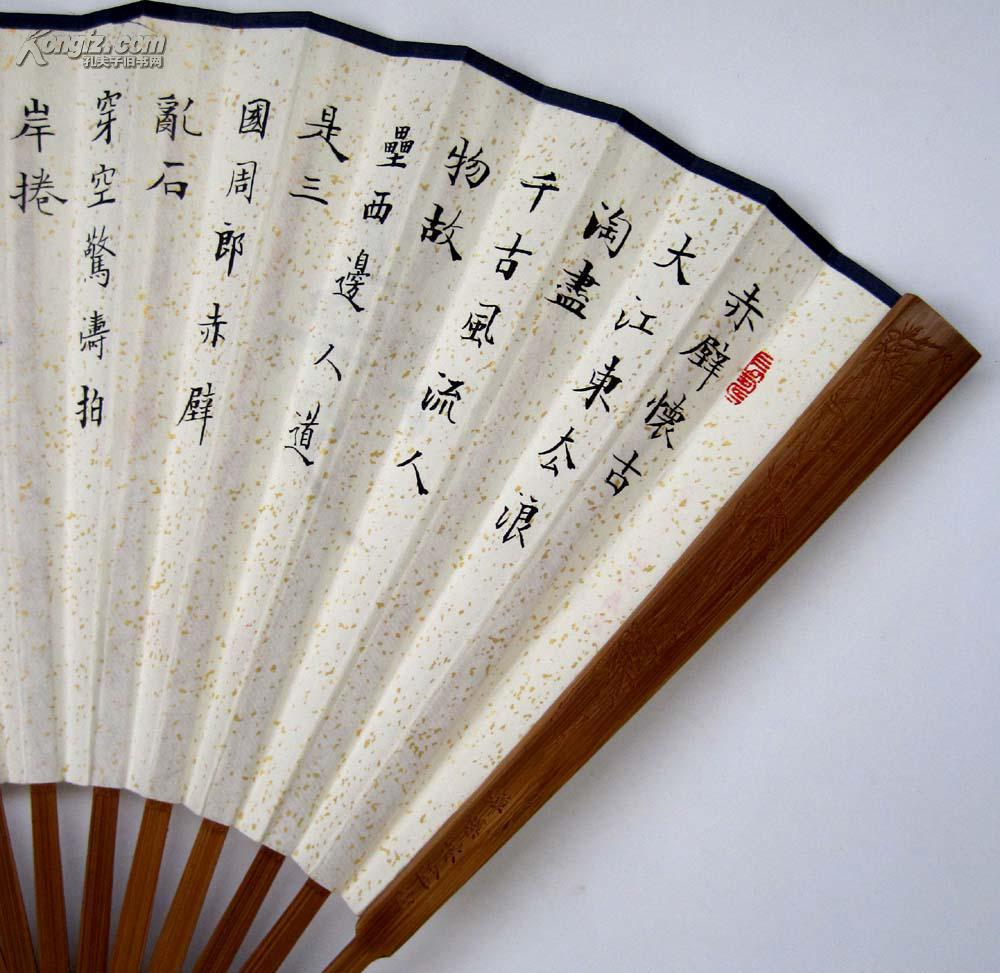 赤壁懷古
大江東厺浪
淘盡
千古風流人
物故
壘西邊人道
是三
國周郎赤壁
亂石
穿空驚濤拍
岸捲
Kongfz.com
孔夫子旧书网